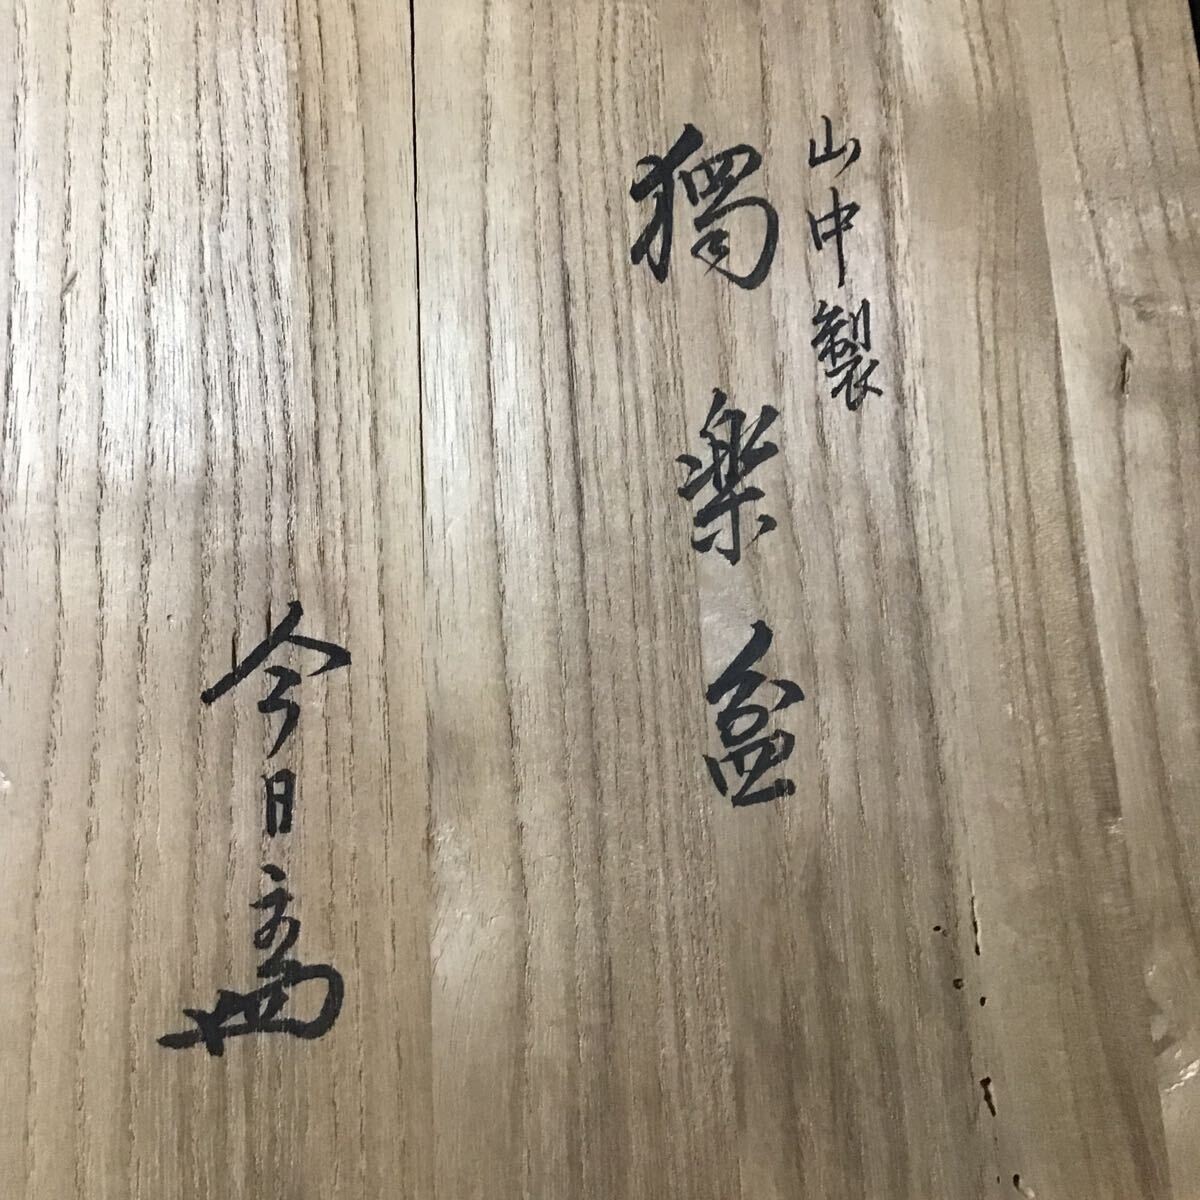 山中製
獨楽盆
今日斎